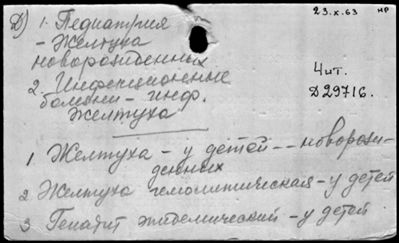 23.X.63 НР
Д) 1. Педиатрия
- Желтуха
новорожденных
2. Инфекционные
болезни - инф.
желтуха
Чит.
Д29716.
1 Желтуха - у детей -- новорож-
денных
2 Желтуха гемолитическая - у детей
3 Гепатит эпидемический - у детей